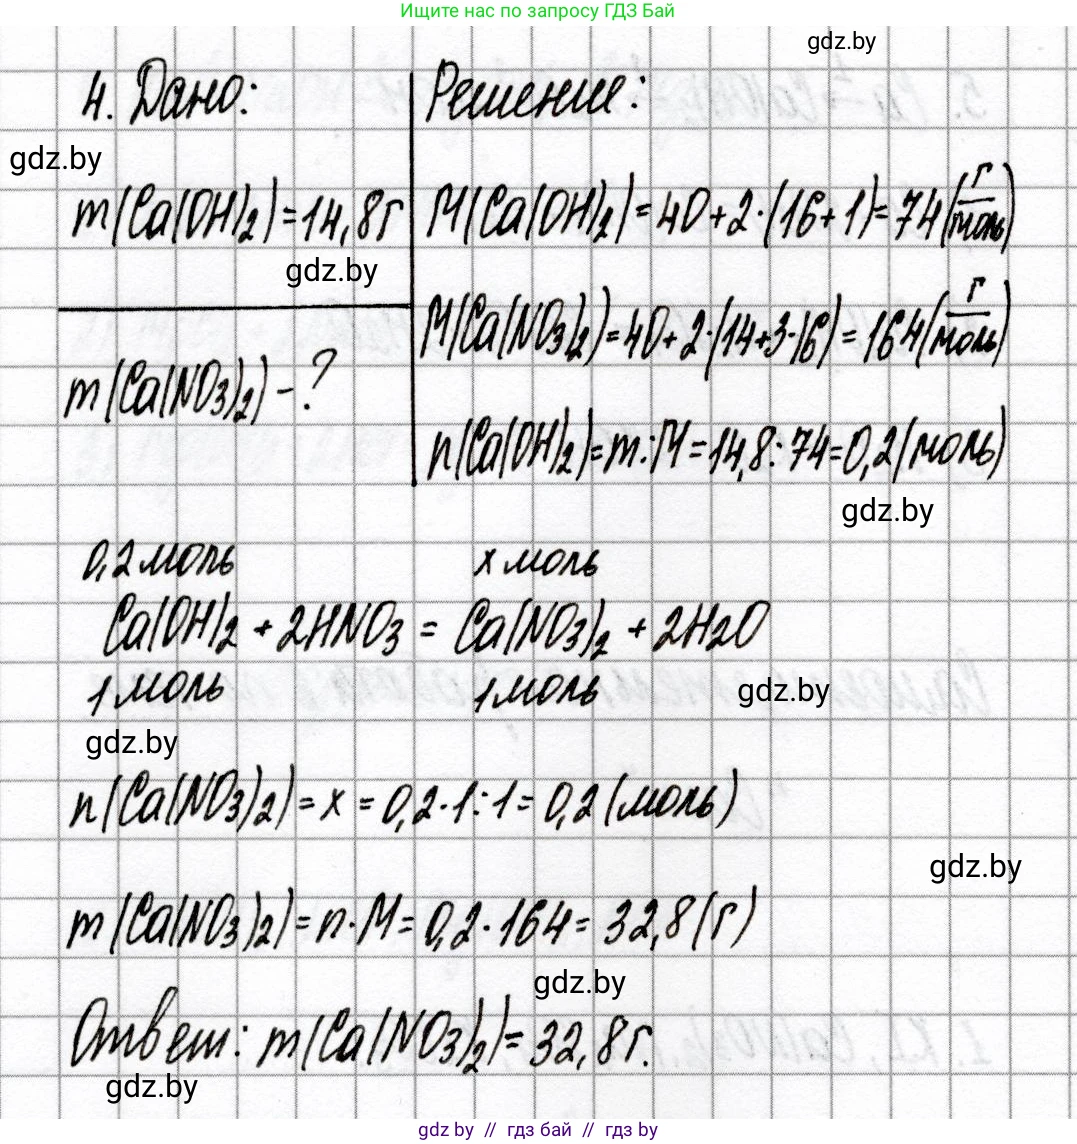 Ищите нас по запросу ГДЗ Бай
gdz.by
4. Дано:
Решение:
gdz.by
m(Ca(OH)2)=14,8г
M(Ca(OH)2)=40+2·(16+1)=74(г/моль)
gdz.by
M(Ca(NO3)2)=40+2·(14+3·16)=164(г/моль)
m(Ca(NO3)2)-?
n(Ca(OH)2)=m:M=14,8:74=0,2(моль)
gdz.by
0,2 моль x моль
Ca(OH)2 + 2HNO3 = Ca(NO3)2 + 2H2O
1 моль 1 моль
gdz.by
gdz.by
n(Ca(NO3)2)=x=0,2·1:1=0,2(моль)
gdz.by
m(Ca(NO3)2)=n·M=0,2·164=32,8(г)
gdz.by
Ответ: m(Ca(NO3)2)=32,8г.
gdz.by
gdz.by // гдз бай // gdz.by